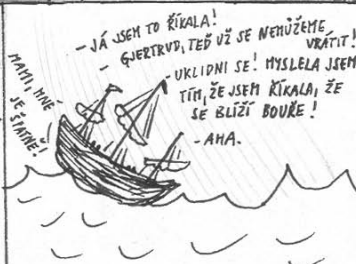 - JÁ JSEM TO ŘÍKALA!
- GJERTRUD, TEĎ UŽ SE NEMŮŽEME
VRÁTIT!
- UKLIDNI SE! MYSLELA JSEM
TÍM, ŽE JSEM ŘÍKALA, ŽE
SE BLÍŽÍ BOUŘE!
- AHA.
MAMI, MNĚ
JE ŠPATNĚ!